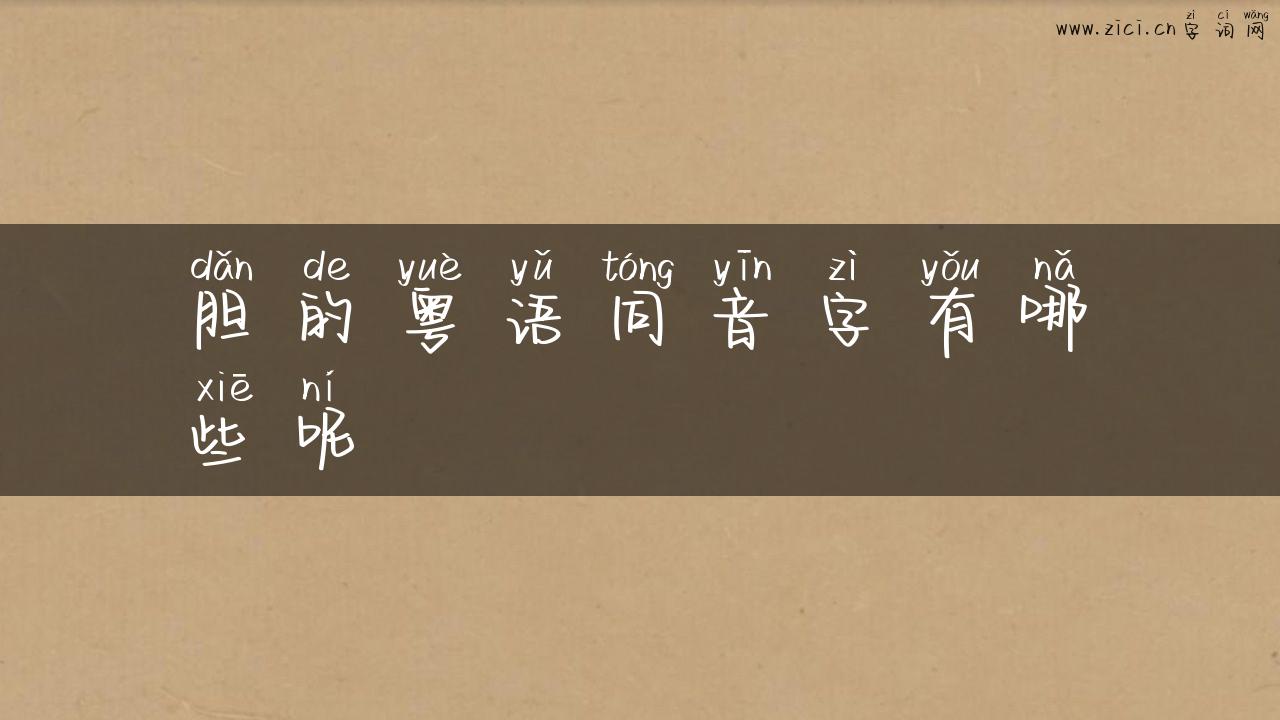 zì cí wǎng
www.zici.cn 字 词 网
dǎn de yuè yǔ tóng yīn zì yǒu nǎ
胆 的 粤 语 同 音 字 有 哪
xiē ní
些 呢